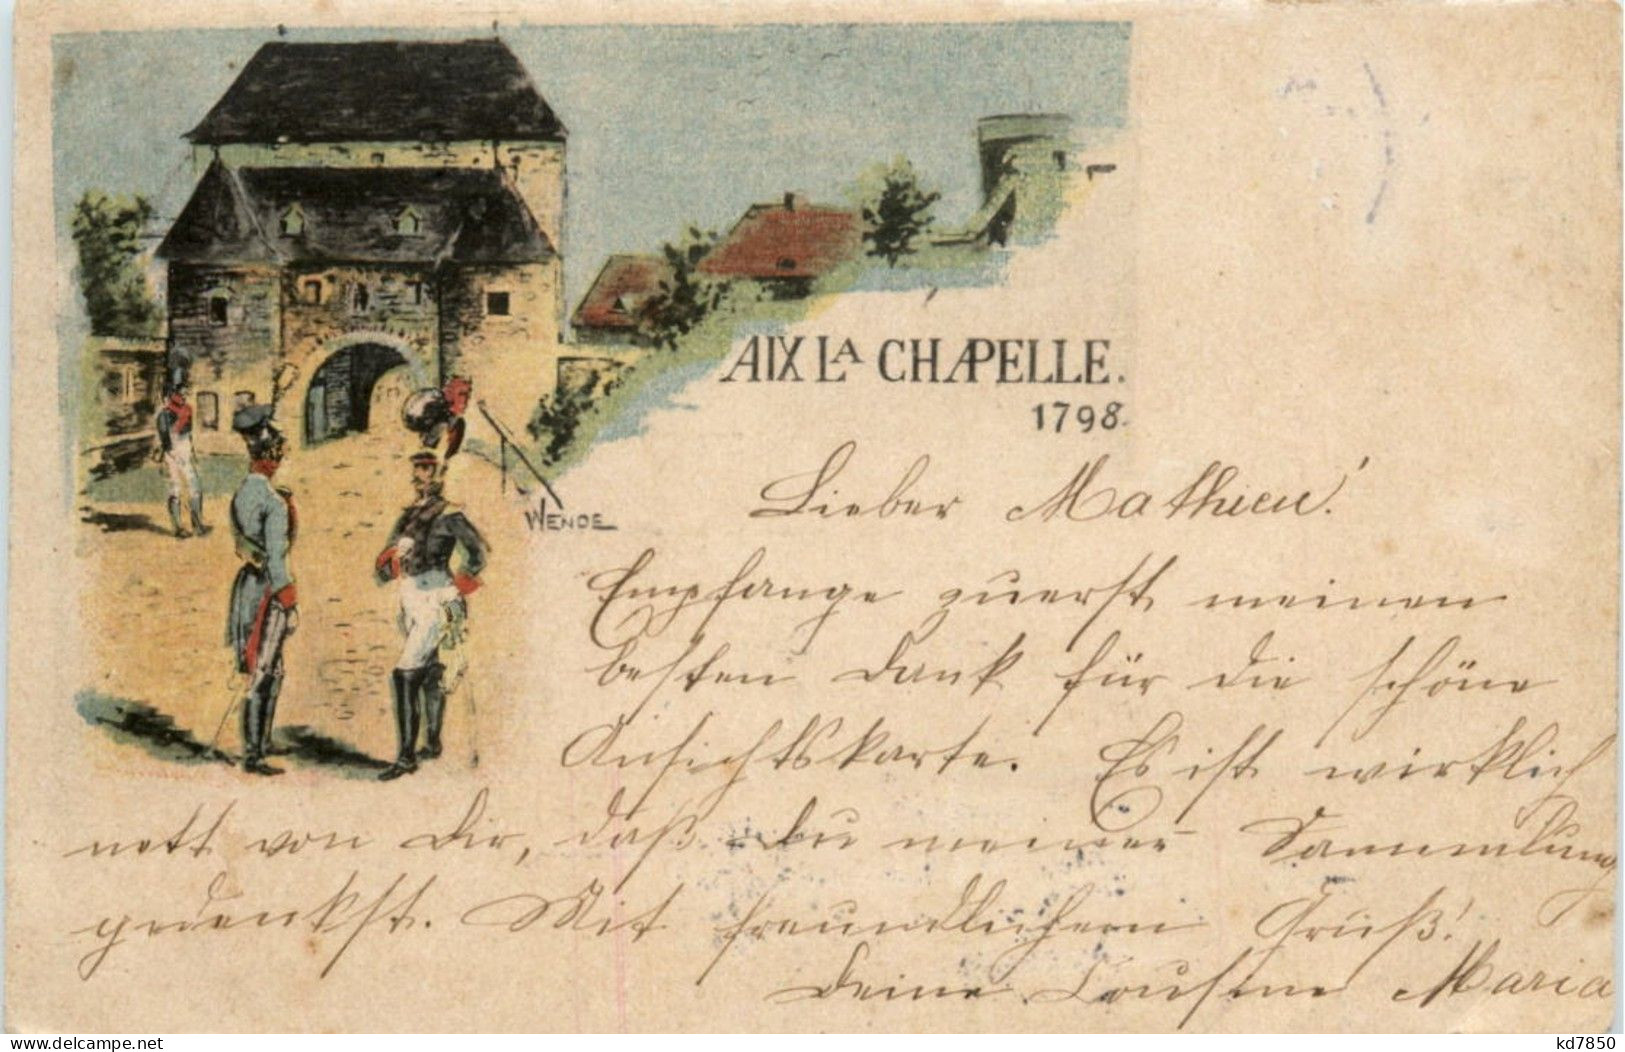 AIX LA CHAPELLE.
1798.
WENDE
Lieber Mathieu!
Empfange zuerst meinen
besten Dank für die schöne
Ansichtskarte. Es ist wirklich
nett von Dir, daß Du meiner Sammlung
gedenkst. Mit freundlichem Gruß!
Deine Cousine Maria
www.delcampe.net
kd7850